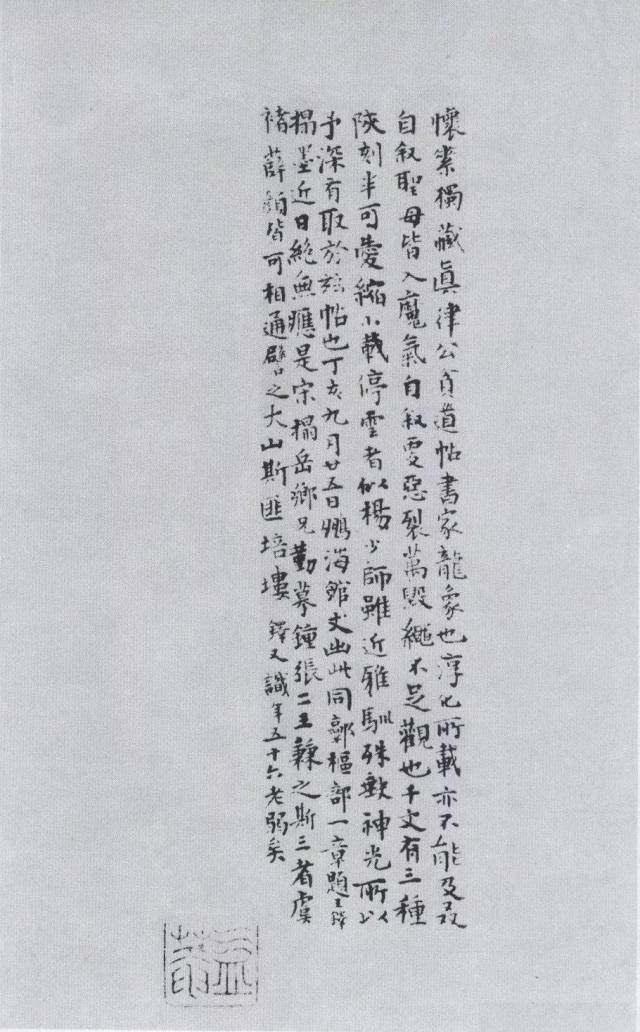 懷素獨藏眞律公貧道帖書家龍象也淳化所載亦不能及
自叙聖母皆入魔氣自叙更惡裂萬毀繩不足觀也千文有三種
陝刻半可愛縮小載停雲者似楊少師雖近雅馴殊歉神光所以
予深有取於茲帖也丁亥九月廿五日海館此同樞部一章題王鐸
搨墨近日絶無應是宋搨岳鄉兄勤摹鍾張二王兼之斯三者虞
褚薛顏皆可相通譬之大山斯匪培塿 鐸又識年五十六老弱矣